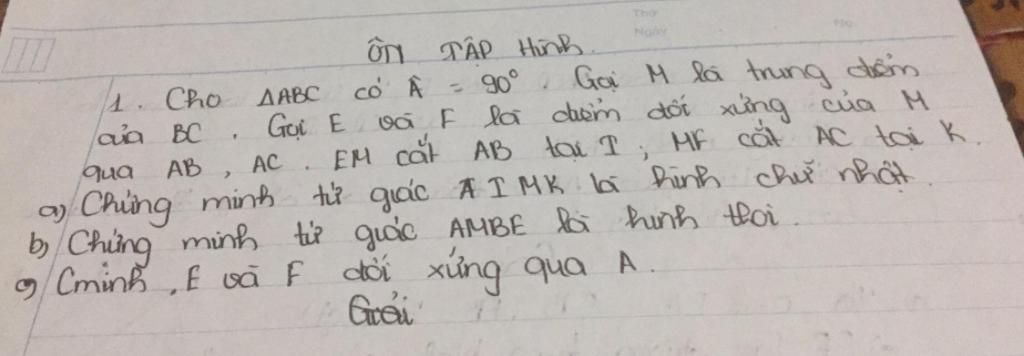 Thứ
Ngày
No
ÔN TẬP Hình.
1. Cho ΔABC có Â = 90°. Gọi M là trung điểm
của BC. Gọi E và F là điểm đối xứng của M
qua AB, AC. EM cắt AB tại I; MF cắt AC tại K.
a) Chứng minh tứ giác AIMK là hình chữ nhật.
b) Chứng minh tứ giác AMBE là hình thoi.
c) Cminh, E và F đối xứng qua A.
Giải